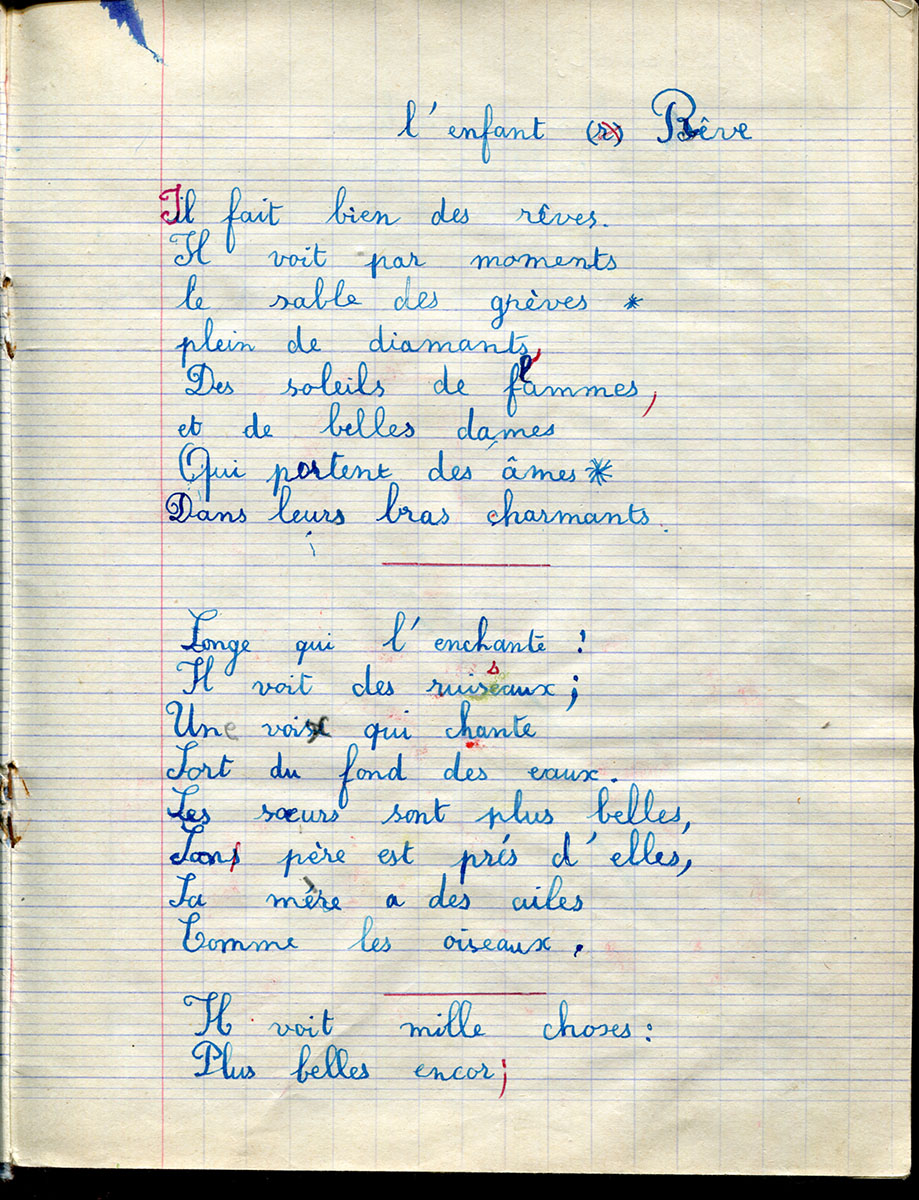 l'enfant (r) Rêve
Il fait bien des rêves.
Il voit par moments
le sable des grèves *
plein de diamants,
Des soleils de flammes,
et de belles dames
Qui portent des âmes *
Dans leurs bras charmants.
Songe qui l'enchante !
Il voit des ruisseaux ;
Une voix qui chante
Sort du fond des eaux.
Les sœurs sont plus belles,
Son père est prés d'elles,
Sa mère a des ailes
Comme les oiseaux.
Il voit mille choses :
Plus belles encor ;